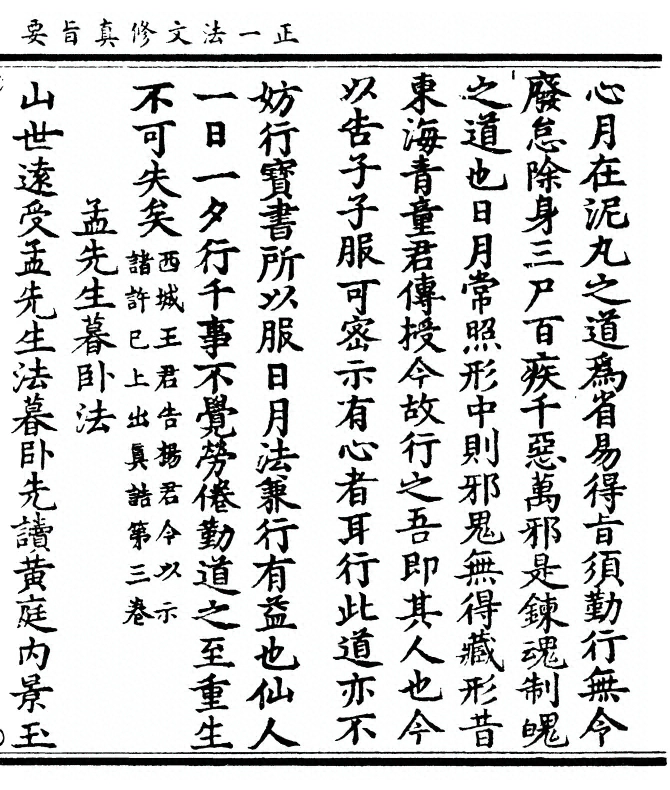 正一法文修真旨要
心月在泥丸之道爲省易得旨須勤行無令
廢怠除身三尸百疾千惡萬邪是鍊魂制魄
之道也日月常照形中則邪鬼無得藏形昔
東海青童君傳授今故行之吾即其人也今
以告子子服可密示有心者耳行此道亦不
妨行寶書所以服日月法兼行有益也仙人
一日一夕行千事不覺勞倦勤道之至重生
不可失矣西城王君告楊君令以示
諸許已上出真誥第三卷
孟先生暮卧法
山世遠受孟先生法暮卧先讀黃庭内景玉